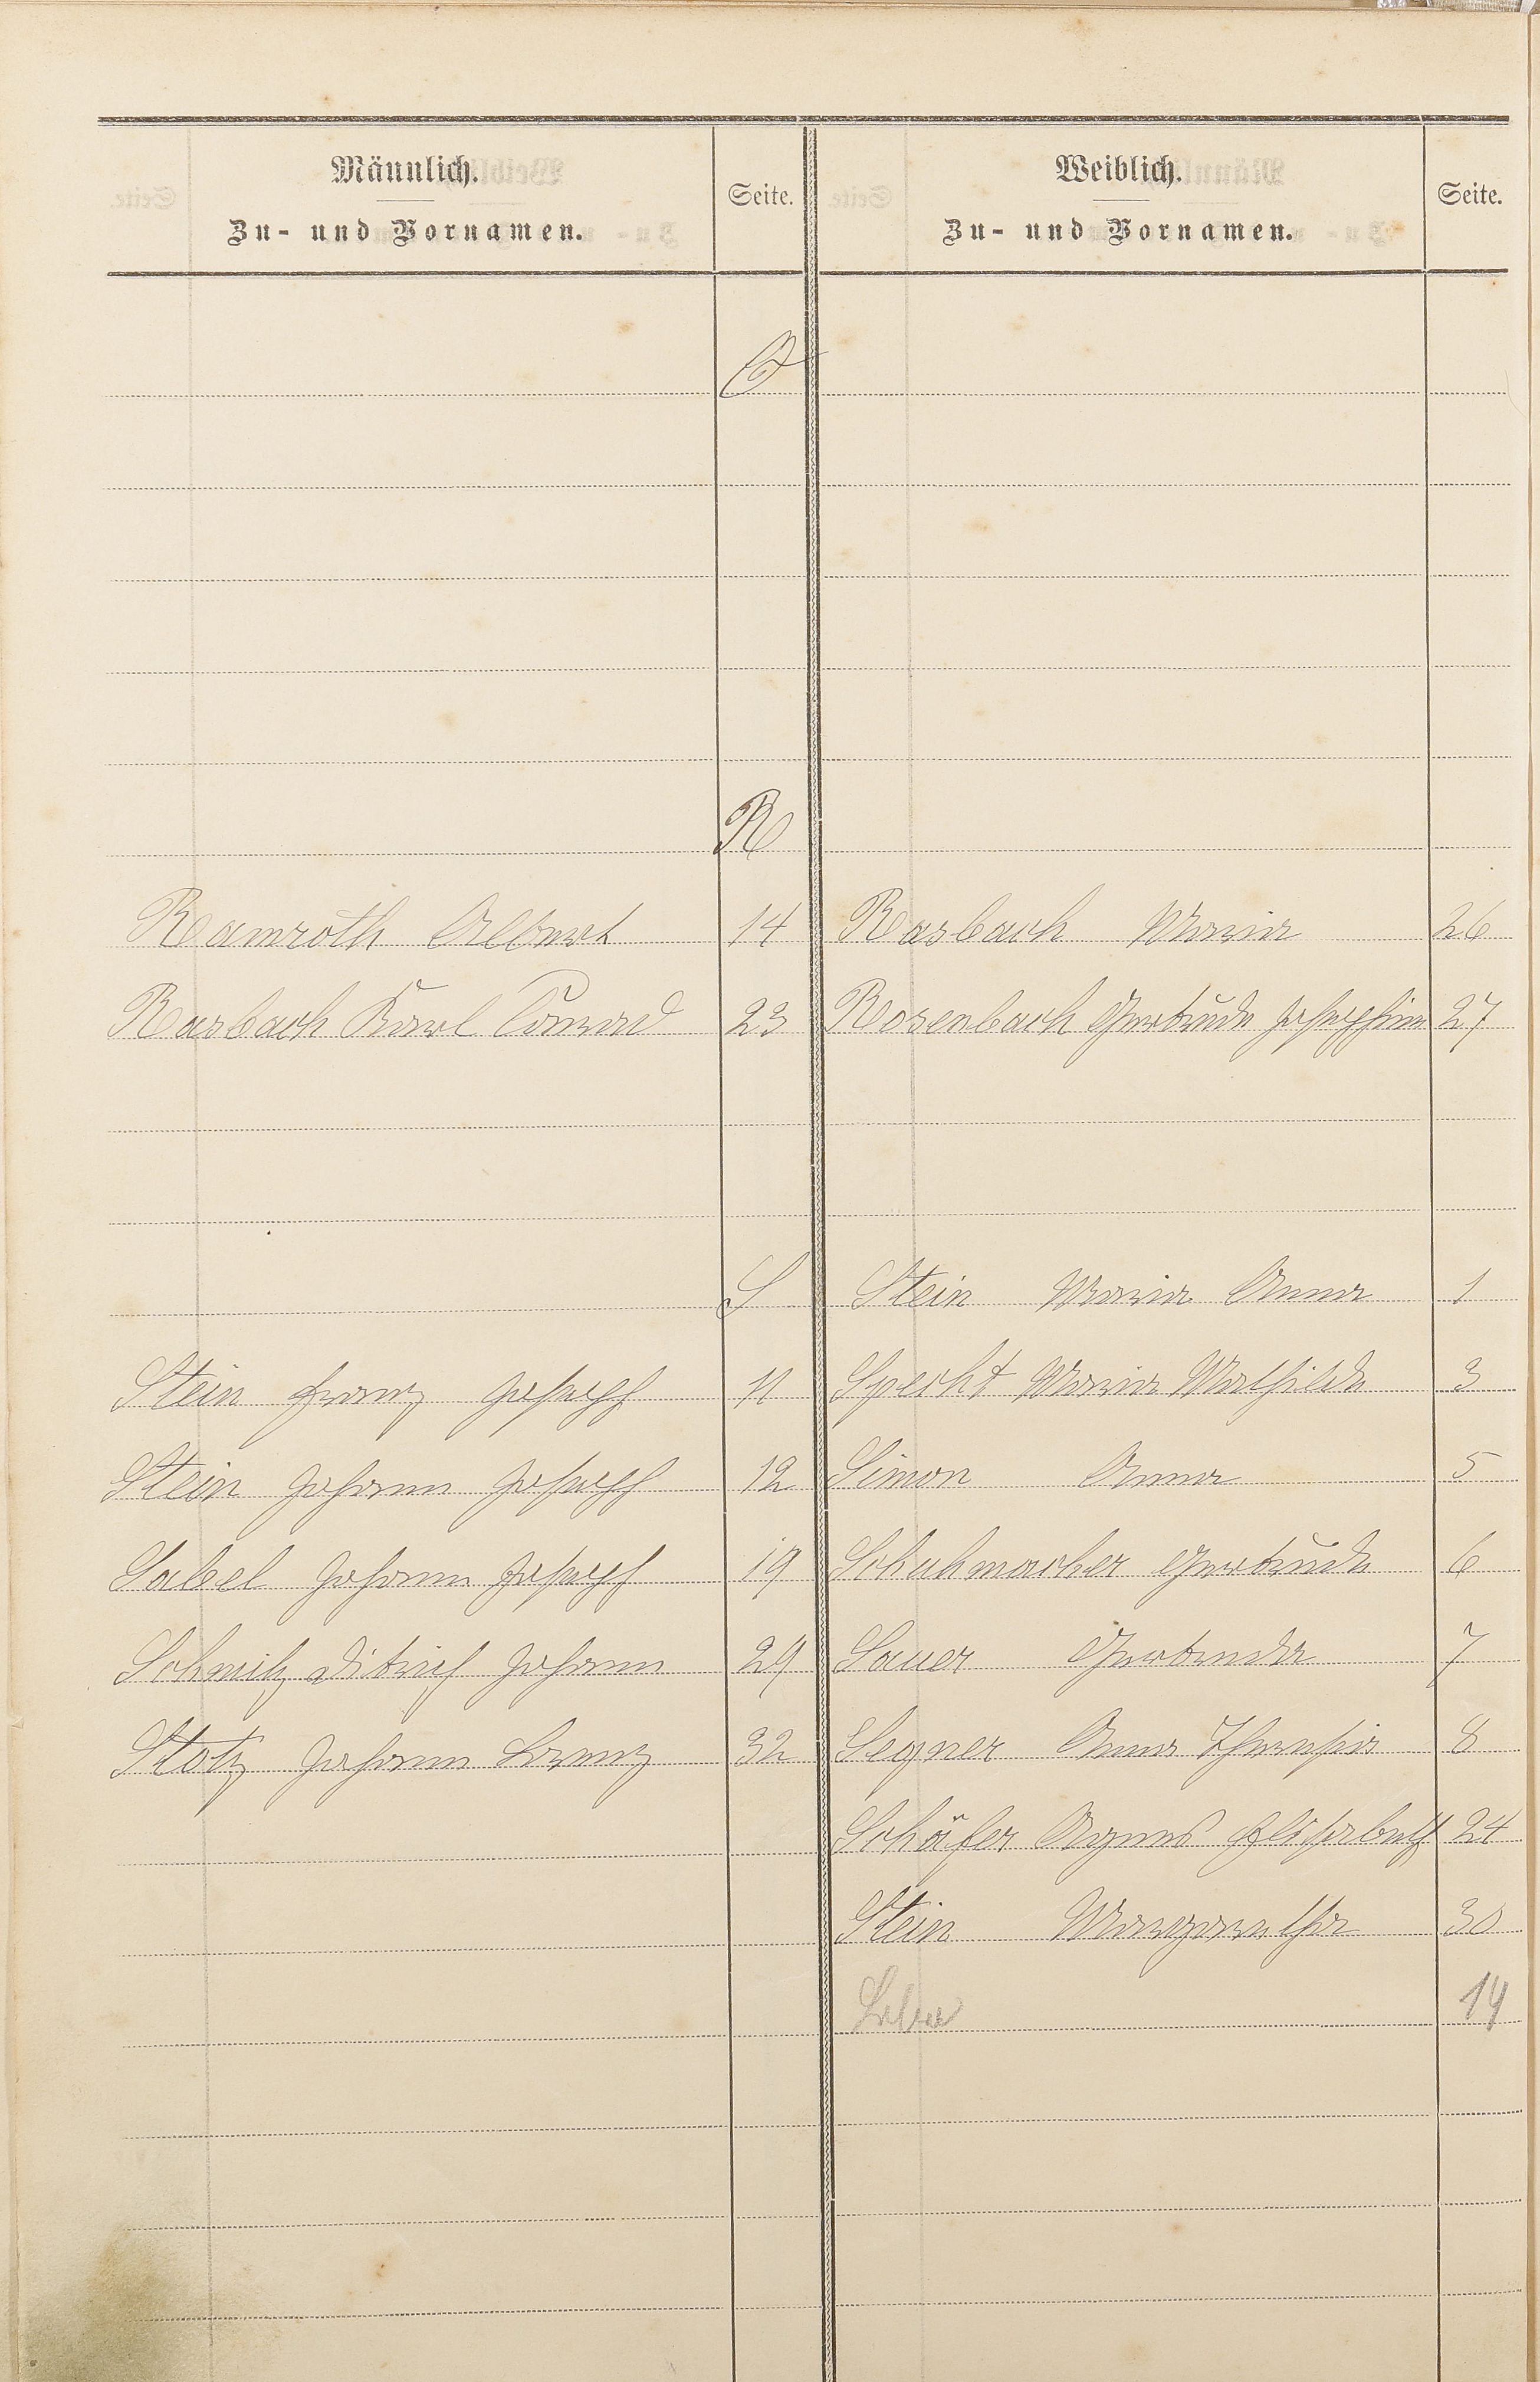 Männlich. Seite. Weiblich. Seite.
Zu- und Vornamen. Zu- und Vornamen.
Q
R
Ramroth Albert 14 Rasbach Maria 26
Rasbach Karl Conrad 23 Rosenbach Gertrude Josephine 27
S Stein Maria Anna 1
Stein Franz Joseph 11 Specht Maria Mathilde 3
Stein Johann Joseph 12 Simon Anna 5
Sabel Johann Joseph 19 Schuhmacher Gertrude 6
Schmitz Johann 29 Sauer Gertruda 7
Stotz Johann Franz 32 Segner Anna Theresia 8
Schäfer Agnes Elisabeth 24
Stein Margaretha 30
19